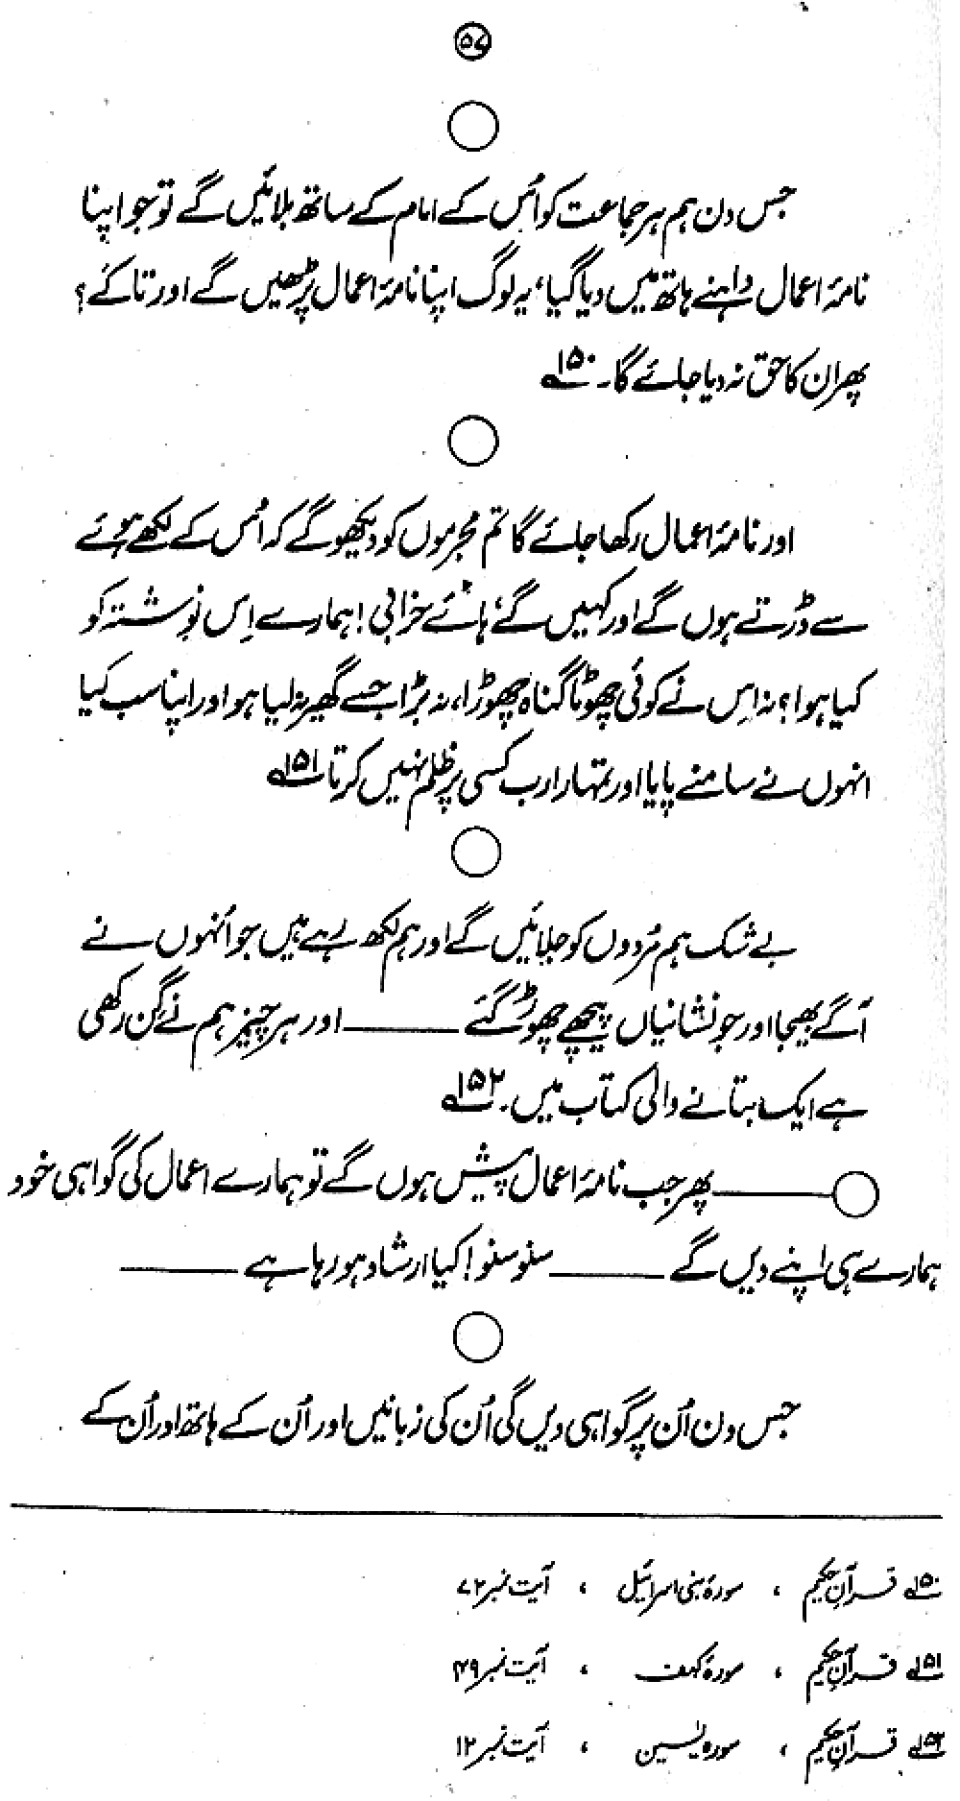 ۵۷
جس دن ہم ہر جماعت کو اُس کے امام کے ساتھ بلائیں گے تو جو اپنا
نامۂ اعمال داہنے ہاتھ میں دیا گیا، یہ لوگ اپنا نامۂ اعمال پڑھیں گے اور تاگے؟
پھر ان کا حق نہ دیا جائے گا۔ ۱۵۰ے
اور نامۂ اعمال رکھا جائے گا تم مجرموں کو دیکھو گے کہ اُس کے لکھے ہوئے
سے ڈرتے ہوں گے اور کہیں گے، ہائے خرابی! ہمارے اِس نوشتہ کو
کیا ہوا؟ نہ اِس نے کوئی چھوٹا گناہ چھوڑا، نہ بڑا جسے گھیر نہ لیا ہو اور اپنا سب کیا
انہوں نے سامنے پایا اور تمہارا رب کسی پر ظلم نہیں کرتا ۱۵۱ے
بے شک ہم مُردوں کو جلائیں گے اور ہم لکھ رہے ہیں جو اُنہوں نے
آگے بھیجا اور جو نشانیاں پیچھے چھوڑ گئے ——— اور ہر چیز ہم نے گِن رکھی
ہے ایک بتانے والی کتاب میں۔ ۱۵۲ے
——— پھر جب نامۂ اعمال پیش ہوں گے تو ہمارے اعمال کی گواہی خود
ہمارے ہی اپنے دیں گے ——— سنو سنو! کیا ارشاد ہو رہا ہے ———
جس دن اُن پر گواہی دیں گی اُن کی زبانیں اور اُن کے ہاتھ اور اُن کے
۱۵۰ے قرآن حکیم ، سورۂ بنی اسرائیل ، آیت نمبر ۷۲
۱۵۱ے قرآن حکیم ، سورۂ کہف ، آیت نمبر ۴۹
۱۵۲ے قرآن حکیم ، سورہ یٰسین ، آیت نمبر ۱۲